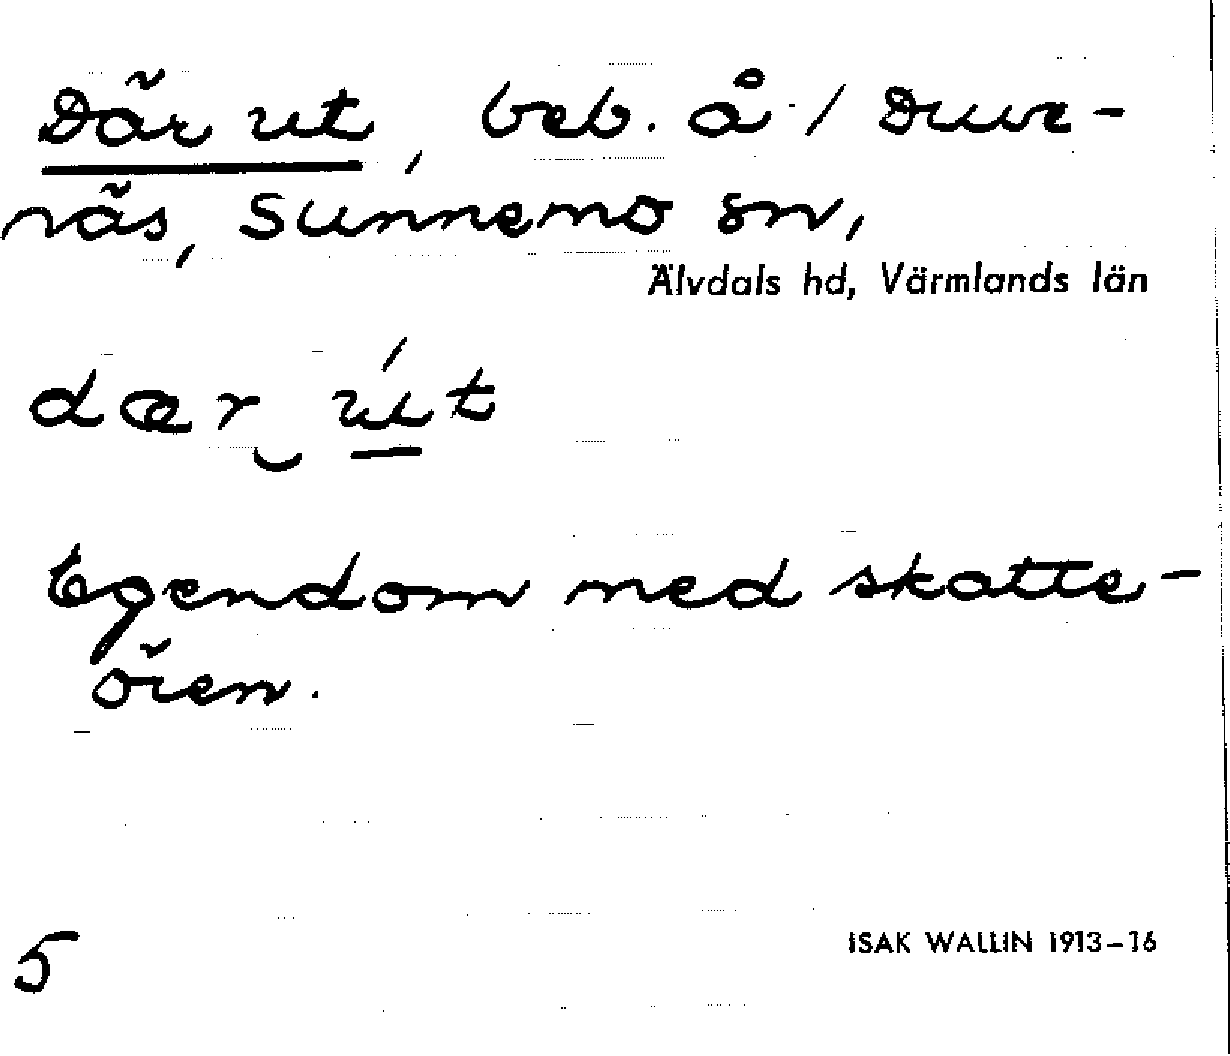 Där ut, beb. å 1 Duve-
näs, Sunnemo sn,
Älvdals hd, Värmlands län
dær‿út
Egendom med skatte-
ören.
5
ISAK WALLIN 1913–16